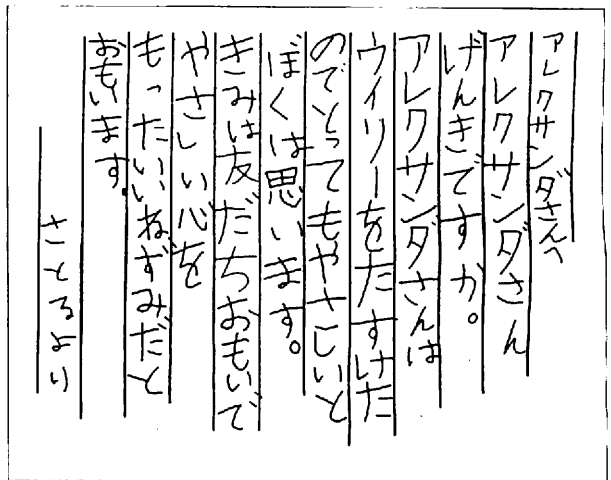 アレクサンダさんへ
アレクサンダさん
げんきですか。
アレクサンダさんは
ウィリーをたすけた
のでとってもやさしいと
ぼくは思います。
きみは友だちおもいで
やさしい心を
もったいいねずみだと
おもいます。
さとるより